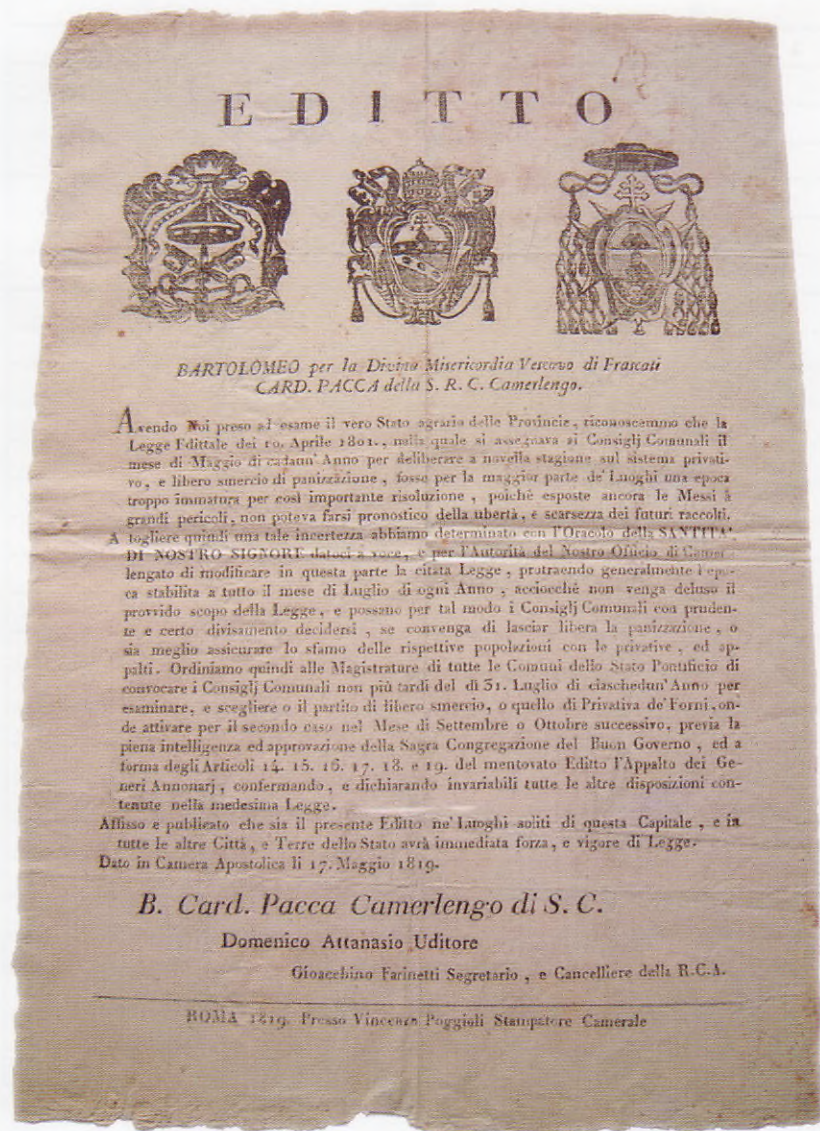 EDITTO
BARTOLOMEO per la Divina Misericordia Vescovo di Frascati
CARD. PACCA della S. R. C. Camerlengo.
Avendo Noi preso ad esame il vero Stato agrario delle Provincie, riconoscemmo che la
Legge Edittale dei 10. Aprile 1801., nella quale si assegnava ai Consiglj Comunali il
mese di Maggio di cadaun' Anno per deliberare a novella stagione sul sistema privati-
vo, e libero smercio di panizzazione, fosse per la maggior parte de' Luoghi una epoca
troppo immatura per così importante risoluzione, poichè esposte ancora le Messi à
grandi pericoli, non poteva farsi pronostico della ubertà, e scarsezza dei futuri raccolti.
A togliere quindi una tale incertezza abbiamo determinato con l'Oracolo della SANTITA'
DI NOSTRO SIGNORE datoci a voce, e per l'Autorità del Nostro Officio di Camer-
lengato di modificare in questa parte la citata Legge, protraendo generalmente l'epo-
ca stabilita a tutto il mese di Luglio di ogni Anno, acciocchè non venga deluso il
provvido scopo della Legge, e possano per tal modo i Consiglj Comunali con pruden-
te e certo divisamento decidersi, se convenga di lasciar libera la panizzazione, o
sia meglio assicurare lo sfamo delle rispettive popolazioni con le privative, ed ap-
palti. Ordiniamo quindi alle Magistrature di tutte le Comuni dello Stato Pontificio di
convocare i Consiglj Comunali non più tardi del dì 31. Luglio di ciaschedun' Anno per
esaminare, e scegliere o il partito di libero smercio, o quello di Privativa de' Forni, on-
de attivare per il secondo caso nel Mese di Settembre o Ottobre successivo, previa la
piena intelligenza ed approvazione della Sagra Congregazione del Buon Governo, ed a
forma degli Articoli 14. 15. 16. 17. 18. e 19. del mentovato Editto l'Appalto dei Ge-
neri Annonarj, confermando, e dichiarando invariabili tutte le altre disposizioni con-
tenute nella medesima Legge.
Affisso e publicato che sia il presente Editto ne' Luoghi soliti di questa Capitale, e in
tutte le altre Città, e Terre dello Stato avrà immediata forza, e vigore di Legge.
Dato in Camera Apostolica li 17. Maggio 1819.
B. Card. Pacca Camerlengo di S. C.
Domenico Attanasio Uditore
Gioacchino Farinetti Segretario, e Cancelliere della R.C.A.
ROMA 1819. Presso Vincenzo Poggioli Stampatore Camerale